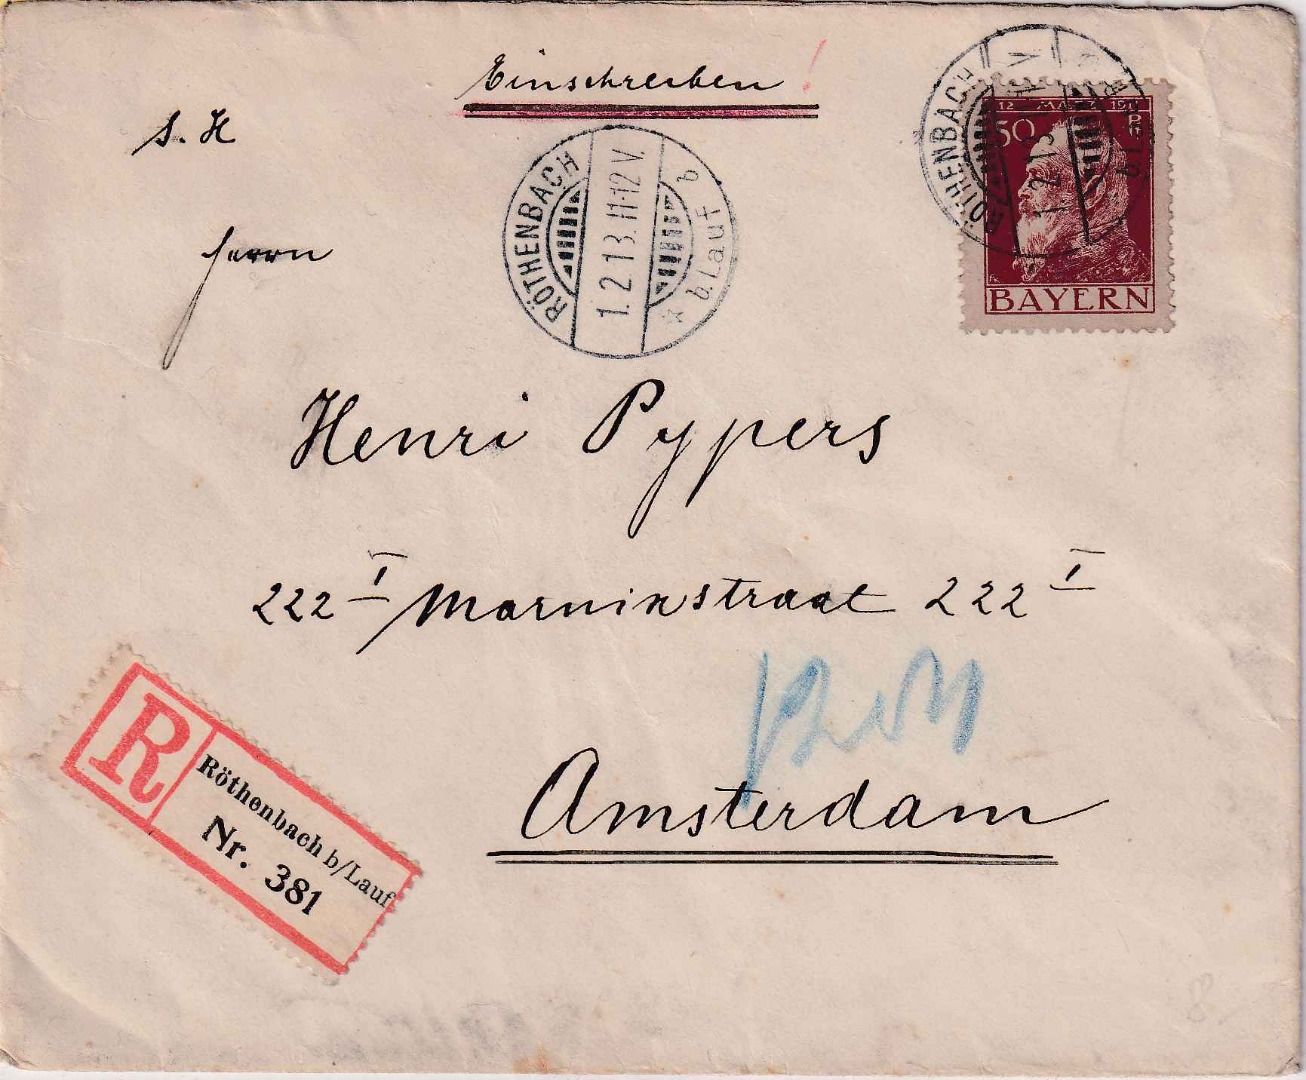 Einschreiben!
S. H
Herrn
RÖTHENBACH
1.2.13.11-12 V.
b. Lauf b
RÖTHENBACH
1.2.13
12 MÄRZ 1911
50
BAYERN
Henri Pypers
222 I Marnixstraat 222 I
Amsterdam
R
Röthenbach b/Lauf
Nr. 381